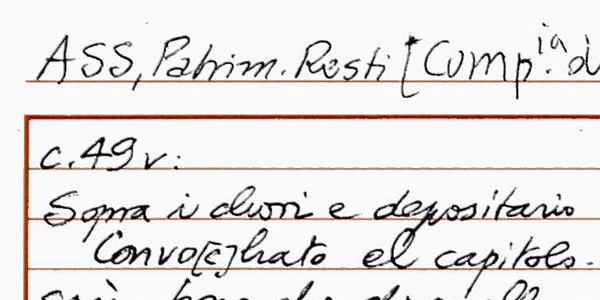 ASS, Patrim. Resti [Comp.ia di
c. 49v:
Sopra i duoni e depositario
Convo[c]hato el capitolo.